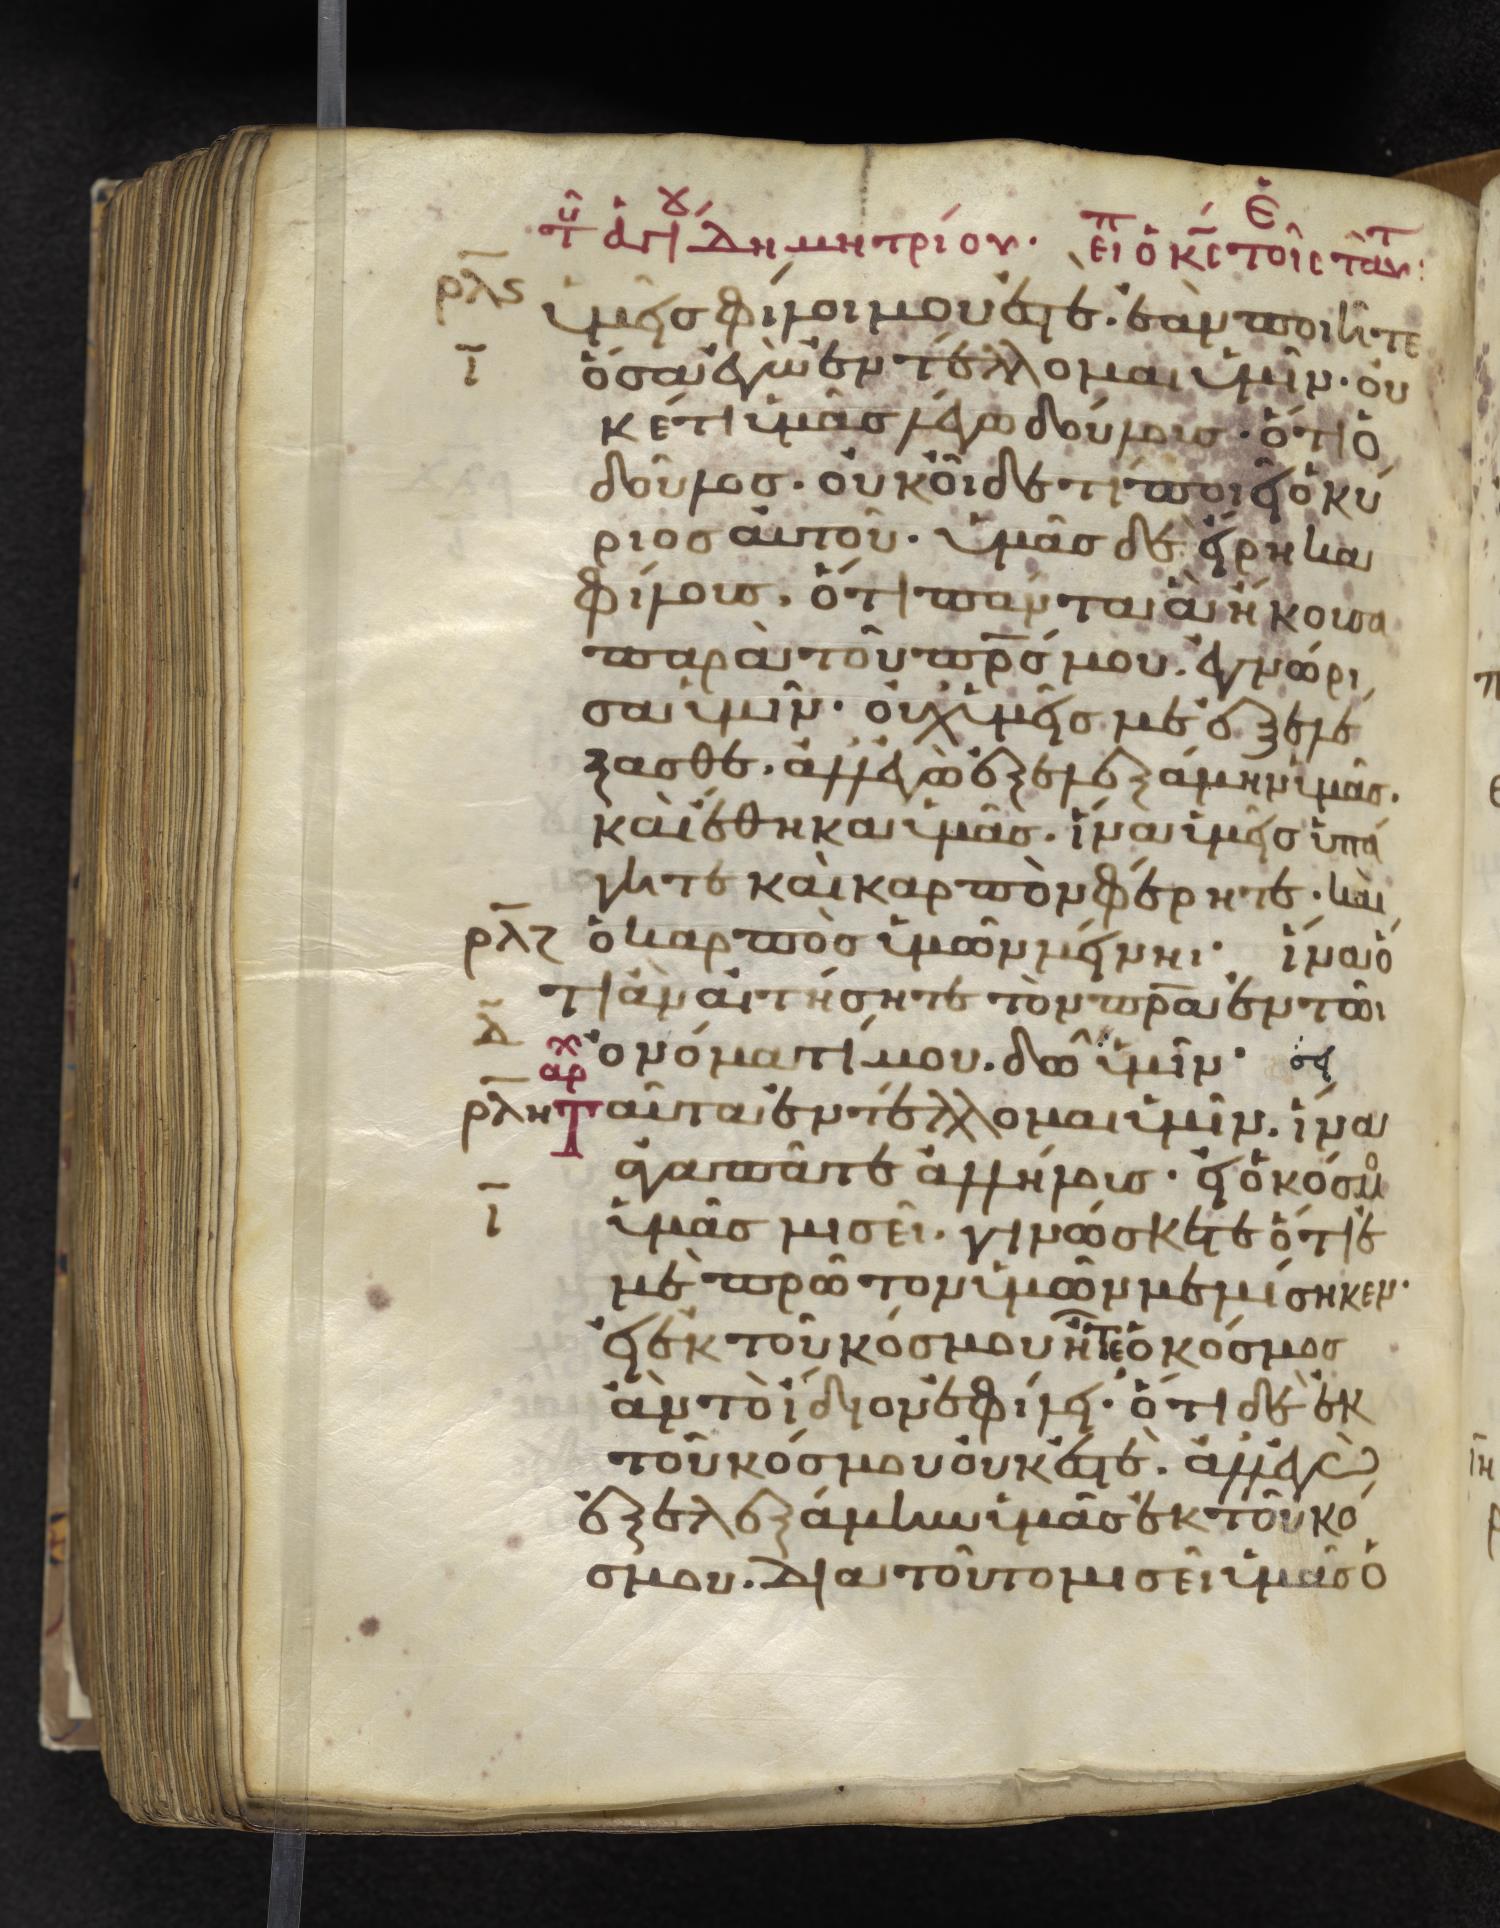 τοῦ ἁγί Δημητρίου· εἶπ ὁ κς τοῖς
ρλς ὑμεῖς φίλοι μου ἐστέ· ἐὰν ποιῆτε
ι ὅσα ἐγὼ ἐντέλλομαι ὑμῖν· οὐ
κέτι ὑμᾶς λέγω δούλους· ὅτι ὁ
δοῦλος· οὐκ οἶδε τί ποιεῖ ὁ κύ
ριος αὐτοῦ· ὑμᾶς δὲ εἴρηκα
φίλους· ὅτι πάντα ἃ ἤκουσα
παρὰ τοῦ πρς μου· ἐγνώρι
σα ὑμῖν· οὐχ ὑμεῖς με ἐξελέ
ξασθε· ἀλλ' ἐγὼ ἐξελεξάμην ὑμᾶς·
καὶ ἔθηκα ὑμᾶς· ἵνα ὑμεῖς ὑπά
γητε καὶ καρπὸν φέρητε· καὶ
ρλζ ὁ καρπὸς ὑμῶν μένηι· ἵνα ὅ
τι ἂν αἰτήσητε τὸν πρα ἐν τῶι
δ ὀνόματί μου· δῶ ὑμῖν·
αρχ
ρλη Ταῦτα ἐντέλλομαι ὑμῖν· ἵνα
ἀγαπᾶτε ἀλλήλους· εἰ ὁ κόσμο
ι ὑμᾶς μισεῖ· γινώσκετε ὅτι ἐ
μὲ πρῶτον ὑμῶν μεμίσηκεν·
εἰ ἐκ τοῦ κόσμου ἦτε ὁ κόσμος
ἂν τὸ ἴδιον ἐφίλει· ὅτι δὲ ἐκ
τοῦ κόσμου οὐκ ἐστέ· ἀλλ' ἐγὼ
ἐξελεξάμην ὑμᾶς ἐκ τοῦ κό
σμου· Διὰ τοῦτο μισεῖ ὑμᾶς ὁ